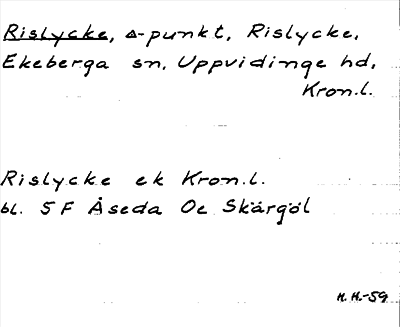 Rislycke, Δ-punkt, Rislycke,
Ekeberga sn, Uppvidinge hd,
Kron.l.
Rislycke ek Kron.l.
bl. 5 F Åseda Oe Skärgöl
H.H.-59